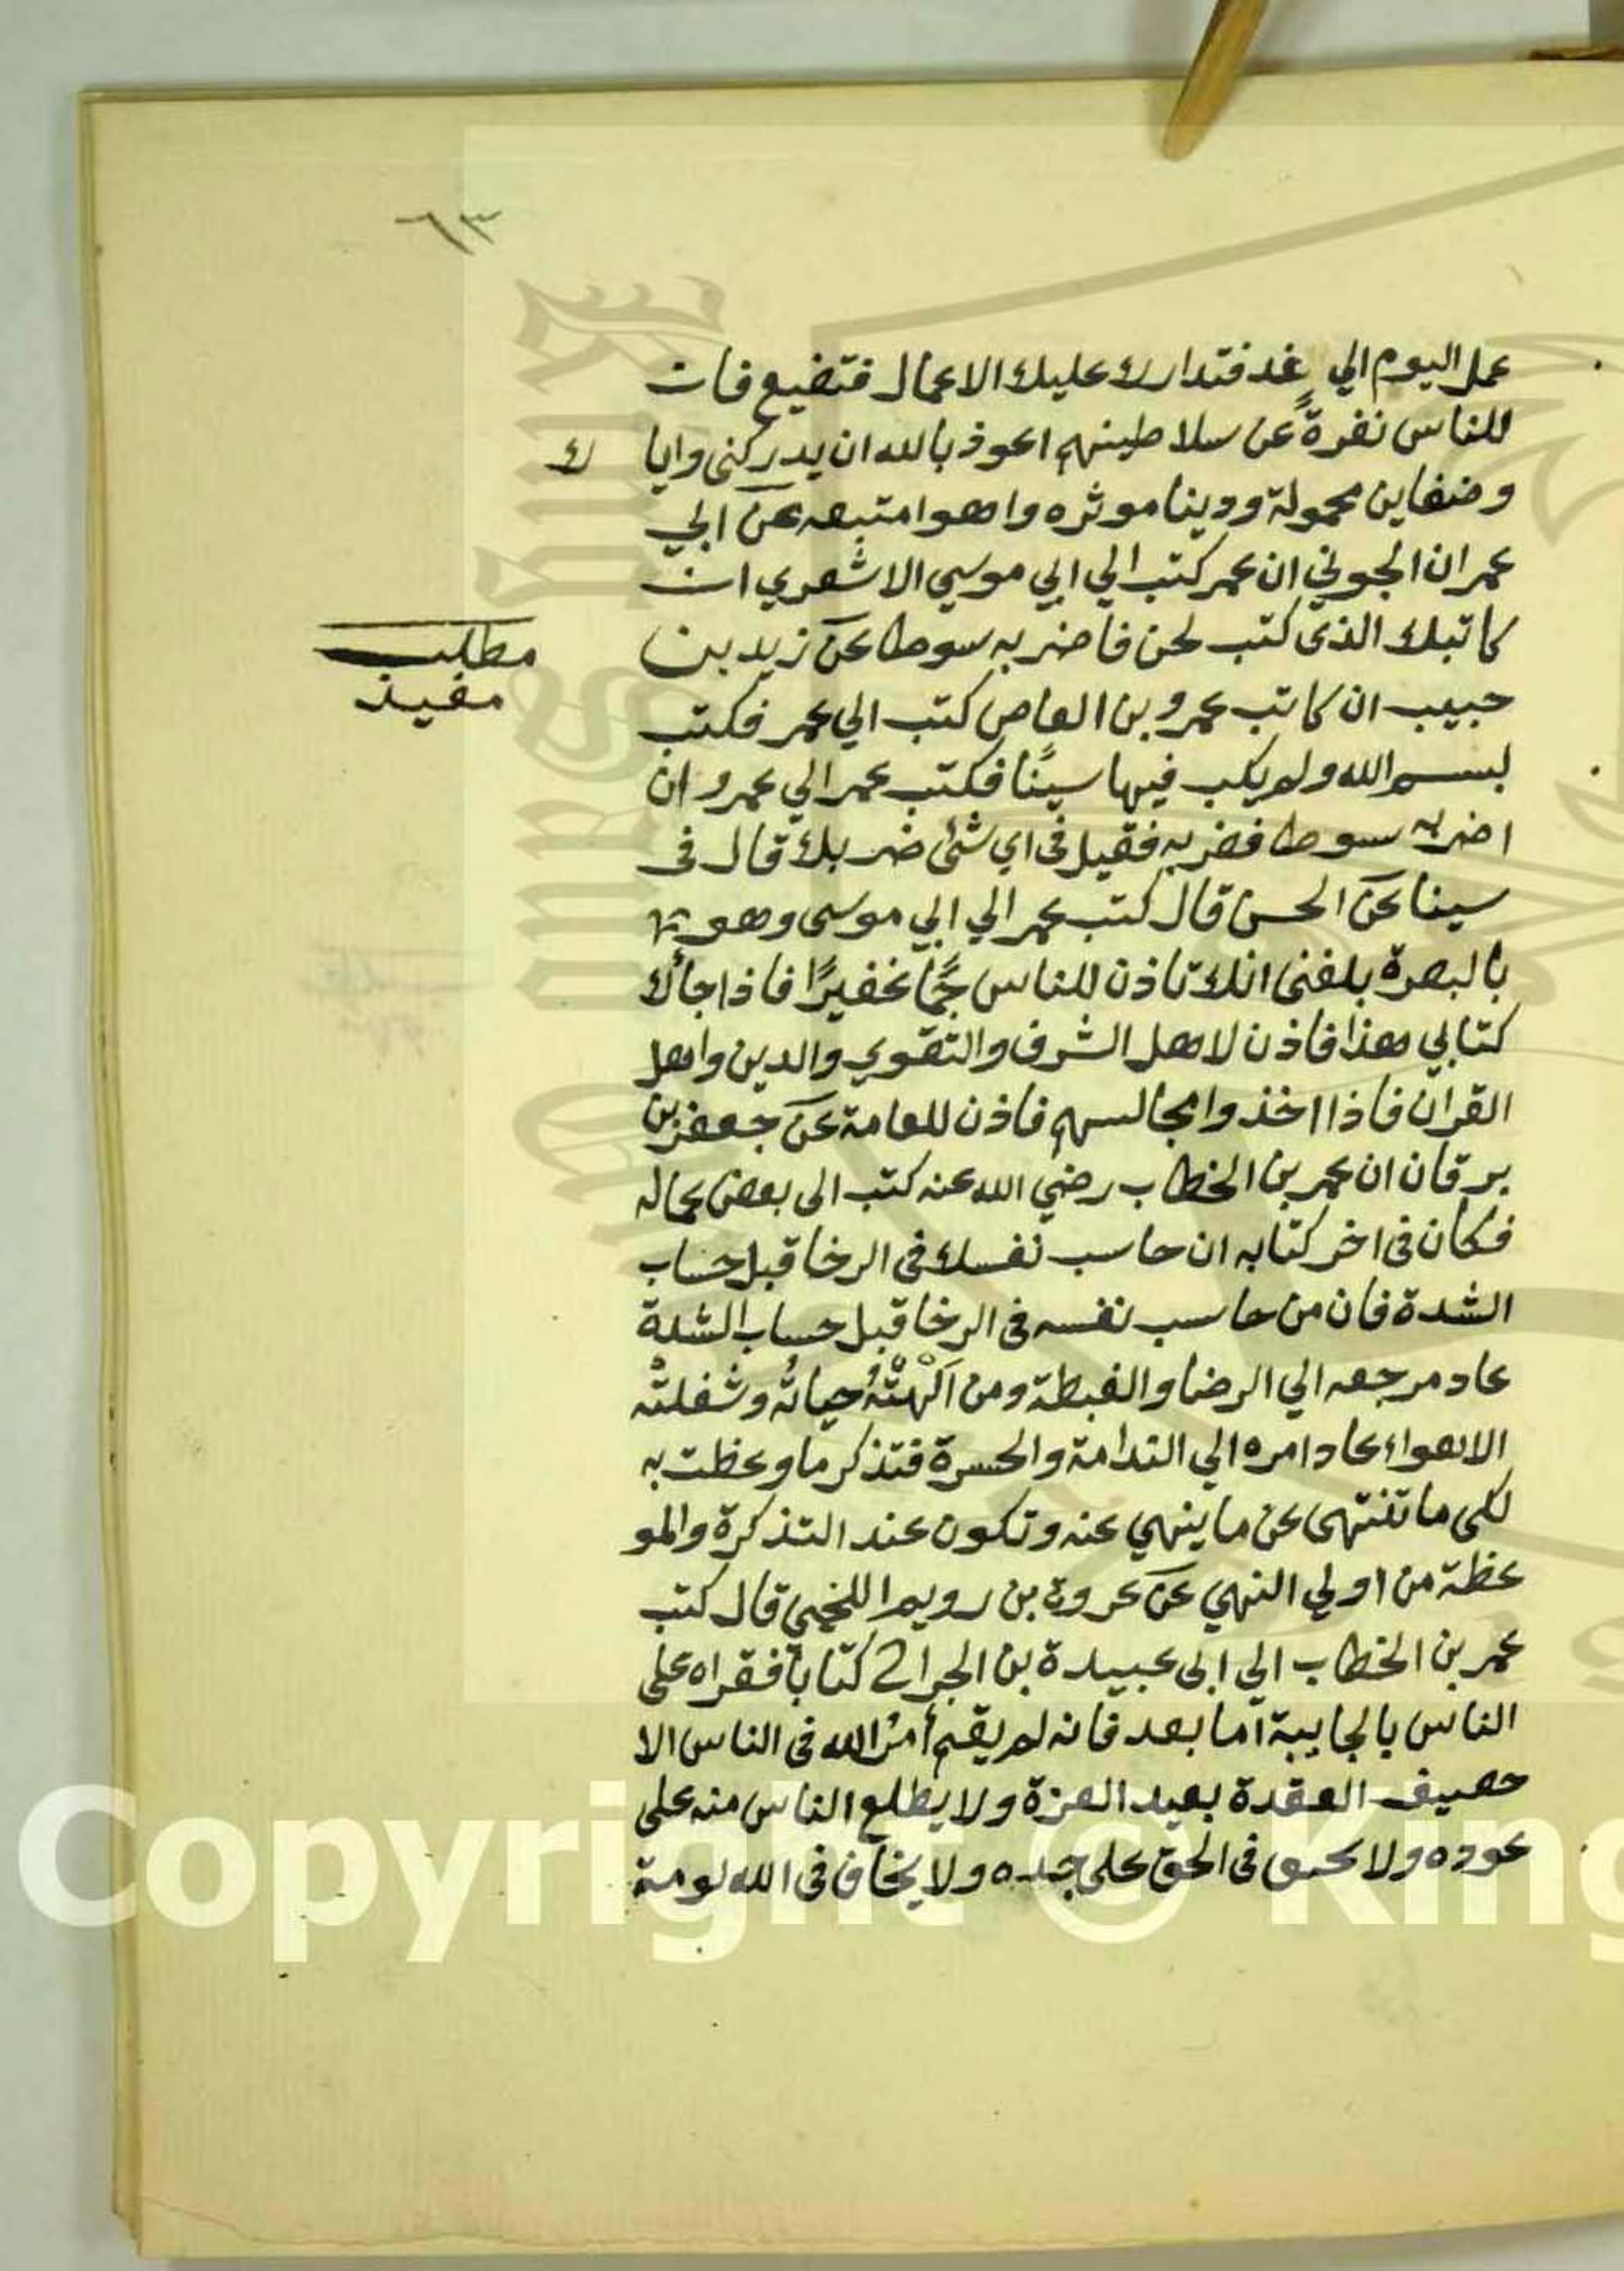 ٦٣
عمل اليوم الي غد فتدارك عليك الاعمال فتضيع فان
للناس نفرةً عن سلاطينهم اعوذ بالله ان يدركني وايا ك
وضغاين محمولة ودينا موثره واهوا متبعه عن ابي
عمران الجوني ان عمر كتب الي ابي موسي الاشعري ان
كاتبك الذى كتب لحن فاضربه سوطا عن زيد بن
مطلب
مفيد
حبيب ان كاتب عمرو بن العاص كتب الي عمر فكتب
بسم الله ولم يكب فيها سينًا فكتب عمر الي عمرو ان
اضربه سوطا فضربه فقيل في اي شئ ضربك قال فى
سينا عن الحسن قال كتب عمر الي ابي موسى وهو
بالبصرة بلغنى انك تاذن للناس جمًّا غفيرًا فاذا جأك
كتابي هذا فاذن لاهل الشرف والتقوي والدين واهل
القران فاذا اخذوا مجالسهم فاذن للعامة عن جعفر بن
برقان ان عمر بن الخطاب رضي الله عنه كتب الى بعض عماله
فكان فى اخر كتابه ان حاسب نفسك في الرخا قبل حساب
الشدة فان من حاسب نفسه فى الرخا قبل حساب الشدة
عاد مرجعه الي الرضا والغبطة ومن اَلْهتْهُ حياتُه وشغلتْه
الاهواء عاد امره الي الندامة والحسرة فتذكر ما وعظت به
لكى ما تنتهى عن ما ينهي عنه وتكون عند التذكرة والمو
عظة من اولي النهي عن عروة بن رويم اللخمي قال كتب
عمر بن الخطاب الي ابى عبيدة بن الجراح كتابا فقراه على
الناس بالجابية اما بعد فانه لم يقم أمرُ الله فى الناس الا
حصيف العقدة بعيد الغرة ولا يطلع الناس منه على
عوده ولا يحنق فى الحق على جده ولا يخاف فى الله لومة